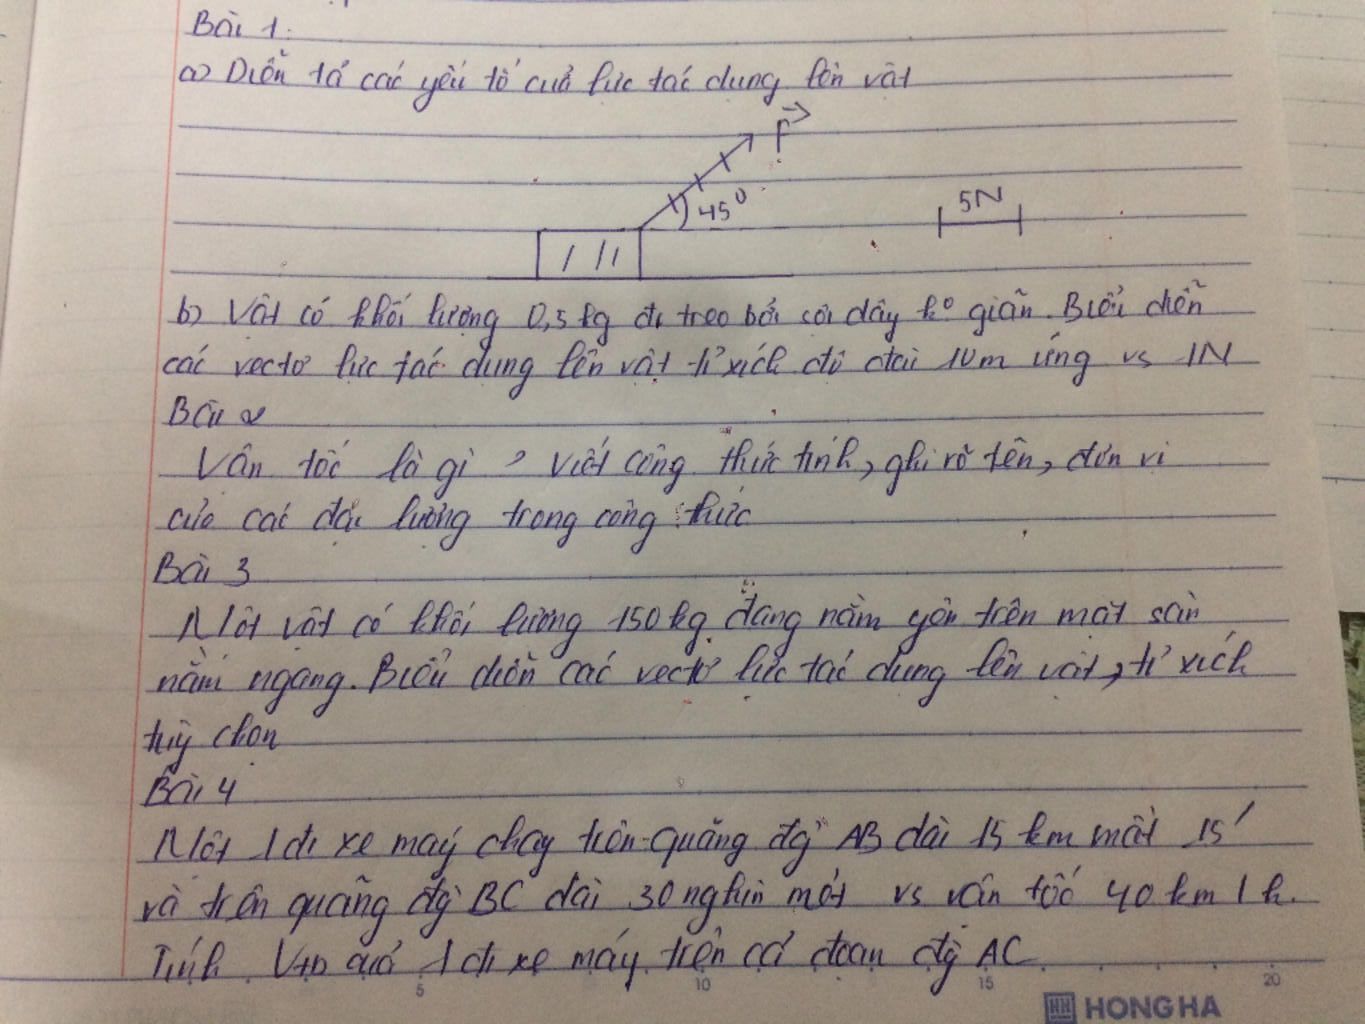 Bài 1:
a) Diễn tả các yếu tố của lực tác dụng lên vật
F
45°
5N
b) Vật có khối lượng 0,5 kg đc treo bởi sợi dây k° giãn. Biểu diễn
các vectơ lực tác dụng lên vật tỉ xích độ dài 10m ứng vs 1N
Bài 2
Vận tốc là gì ? Viết công thức tính, ghi rõ tên, đơn vị
của các đại lượng trong công thức
Bài 3
Một vật có khối lượng 150kg đang nằm yên trên mặt sàn
nằm ngang. Biểu diễn các vectơ lực tác dụng lên vật, tỉ xích
tuỳ chọn
Bài 4
Một 1 đi xe máy chạy trên quãng đg AB dài 15 km mất 15'
và trên quãng đg BC dài 30 nghìn mét vs vận tốc 40 km/h.
Tính Vtb của 1 đi xe máy trên cả đoạn đg AC
5 10 15 20
HH HONG HA